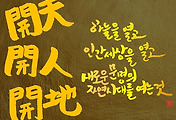 開天
開人
開地
하늘을 열고
인간세상을 열고
새로운 문명의
자연시대를 여는 것